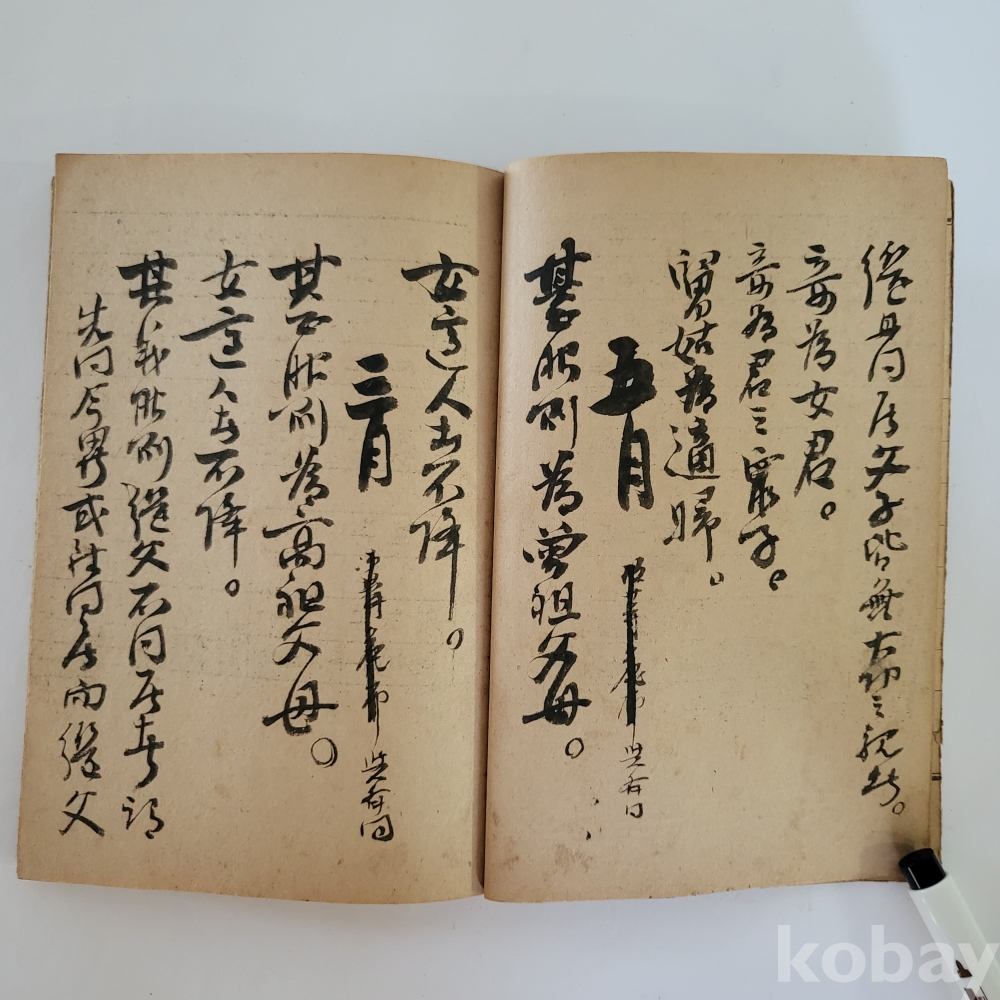 繼母同居父子皆無大功之親者。
妾爲女君。
妾爲君之衆子。
舅姑爲適婦。
五月
其正服則爲曾祖父母。
女適人者不降。
三月
其正服則爲高祖父母。
女適人者不降。
其義服則繼父不同居者謂
先同今異或雖同居而繼父
kobay